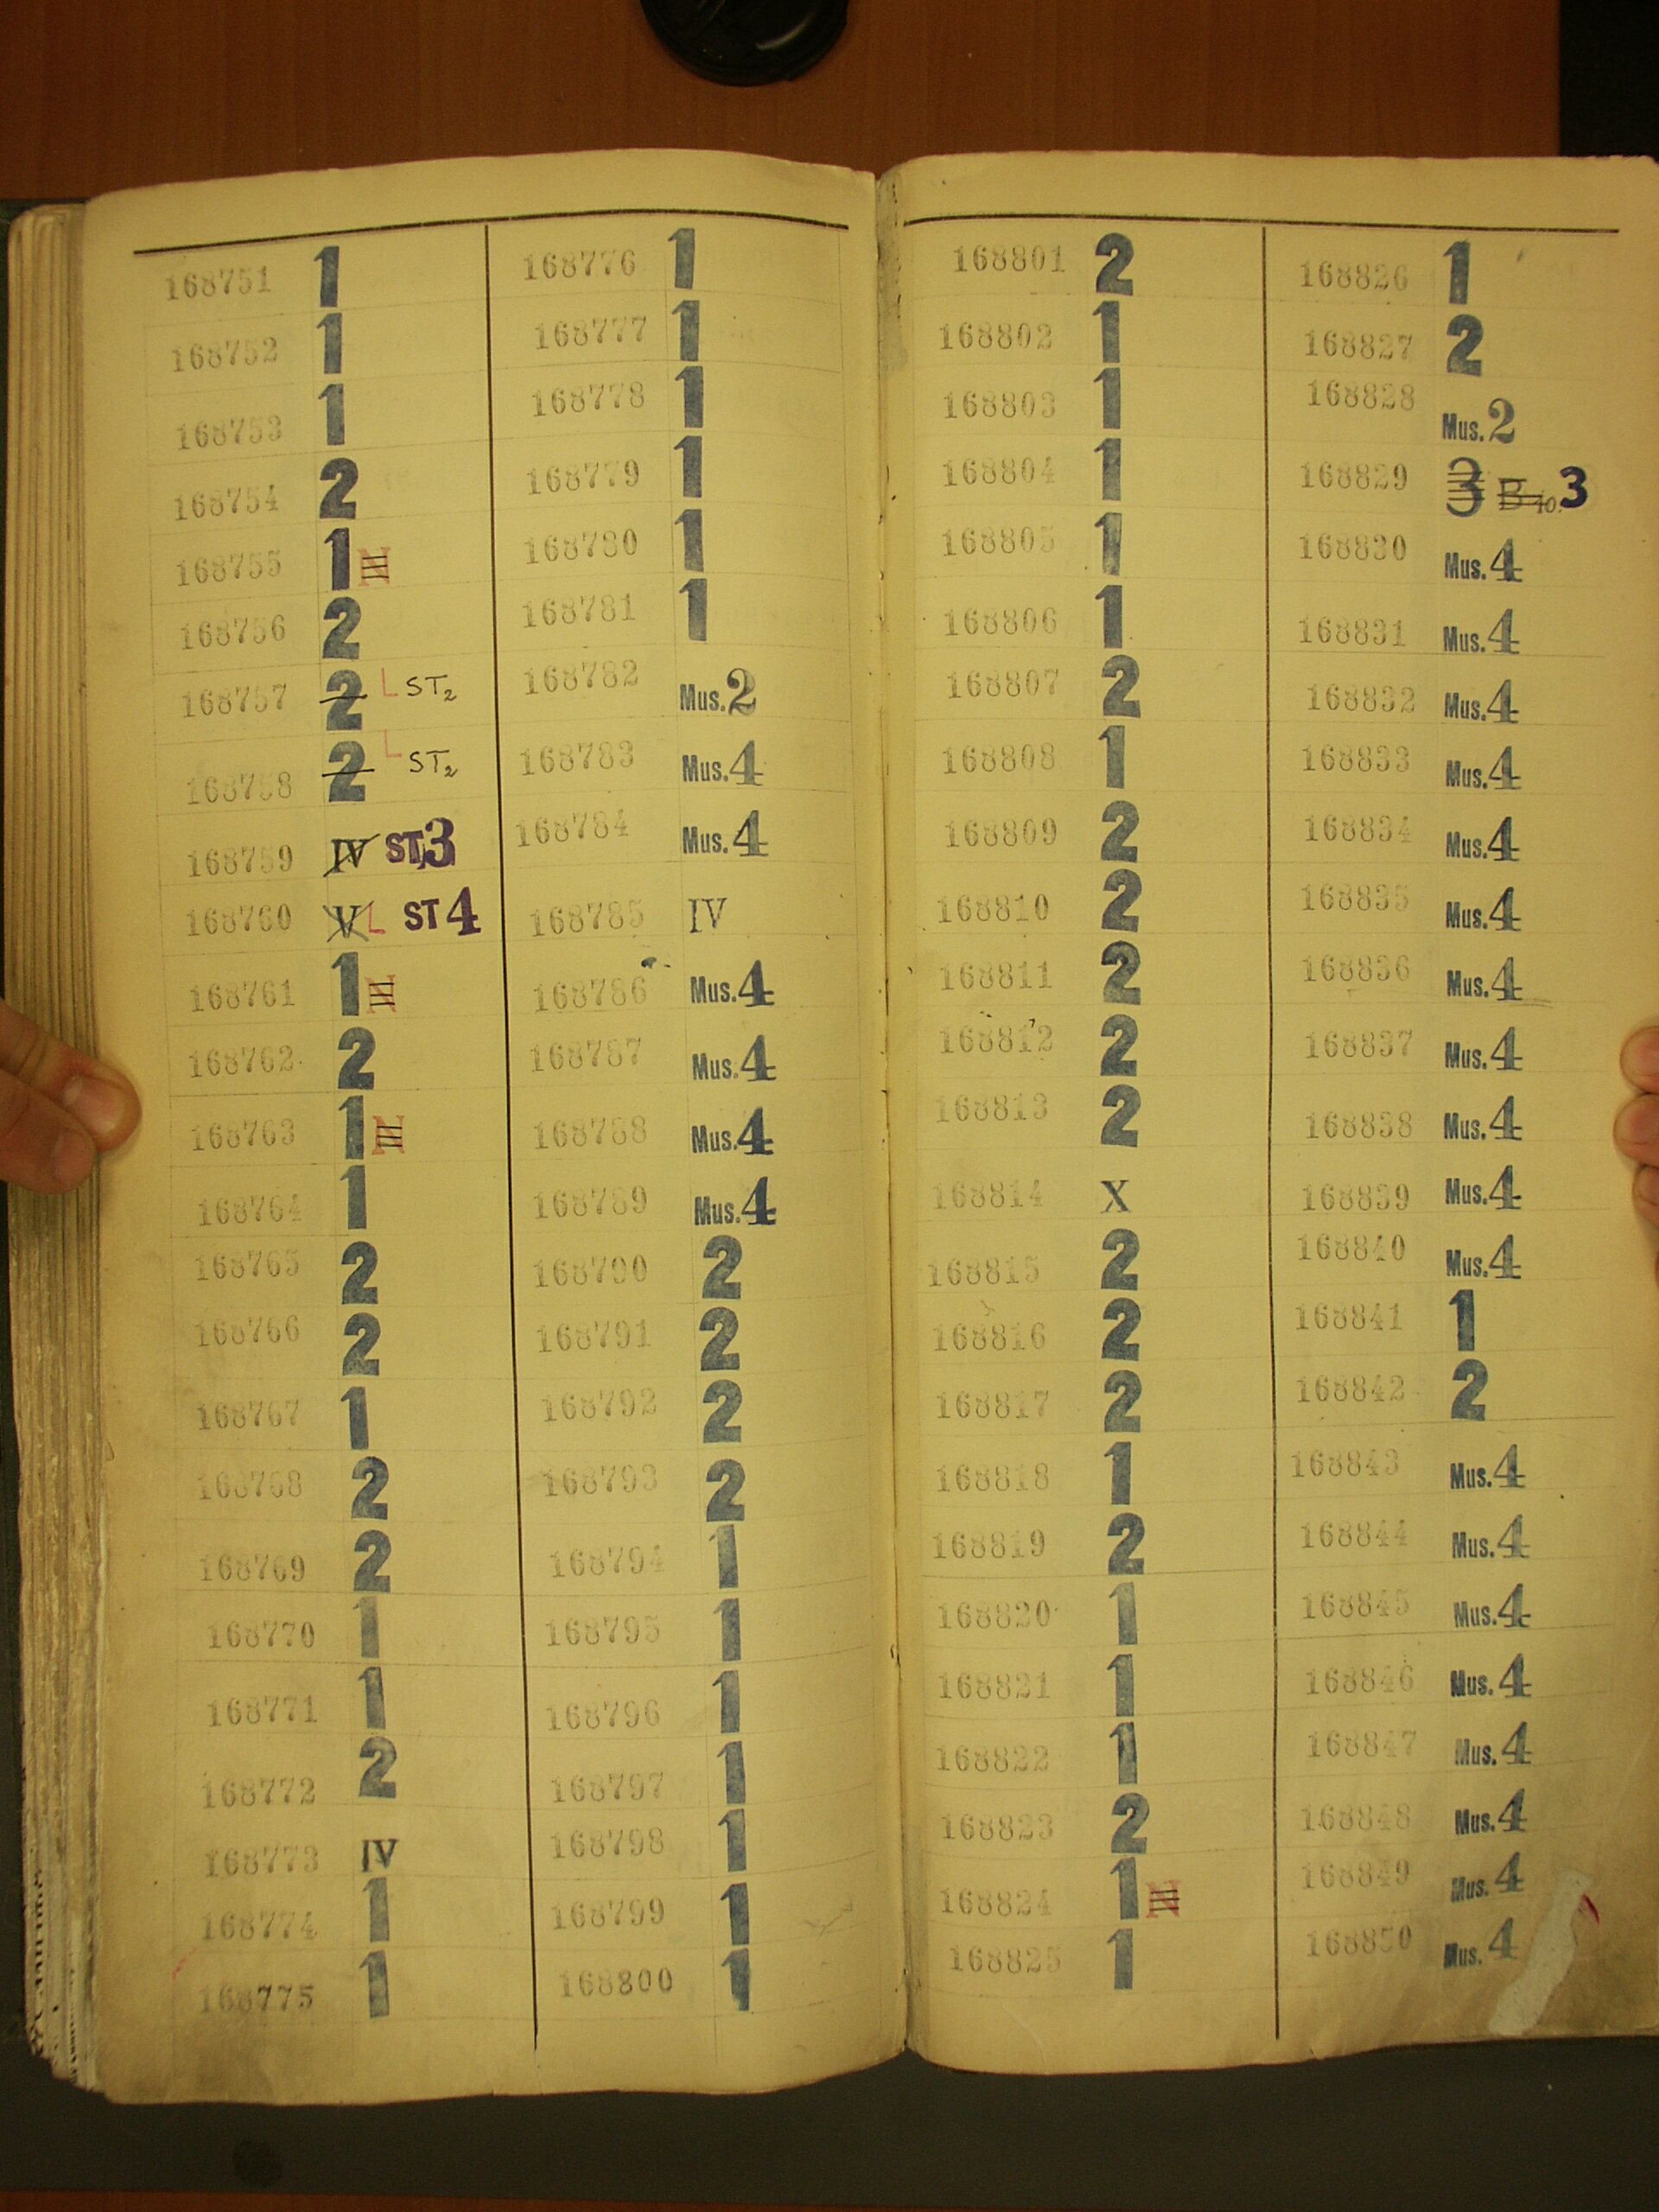 168751 1
168752 1
168753 1
168754 2
168755 1 N
168756 2
168757 2 L ST2
168758 2 L ST2
168759 IV ST3
168760 V L ST4
168761 1 N
168762 2
168763 1 N
168764 1
168765 2
168766 2
168767 1
168768 2
168769 2
168770 1
168771 1
168772 2
168773 IV
168774 1
168775 1
168776 1
168777 1
168778 1
168779 1
168780 1
168781 1
168782 Mus. 2
168783 Mus. 4
168784 Mus. 4
168785 IV
168786 Mus. 4
168787 Mus. 4
168788 Mus. 4
168789 Mus. 4
168790 2
168791 2
168792 2
168793 2
168794 1
168795 1
168796 1
168797 1
168798 1
168799 1
168800 1
168801 2
168802 1
168803 1
168804 1
168805 1
168806 1
168807 2
168808 1
168809 2
168810 2
168811 2
168812 2
168813 2
168814 X
168815 2
168816 2
168817 2
168818 1
168819 2
168820 1
168821 1
168822 1
168823 2
168824 1 N
168825 1
168826 1
168827 2
168828 Mus. 2
168829 3 B 10. 3
168830 Mus. 4
168831 Mus. 4
168832 Mus. 4
168833 Mus. 4
168834 Mus. 4
168835 Mus. 4
168836 Mus. 4
168837 Mus. 4
168838 Mus. 4
168839 Mus. 4
168840 Mus. 4
168841 1
168842 2
168843 Mus. 4
168844 Mus. 4
168845 Mus. 4
168846 Mus. 4
168847 Mus. 4
168848 Mus. 4
168849 Mus. 4
168850 Mus. 4